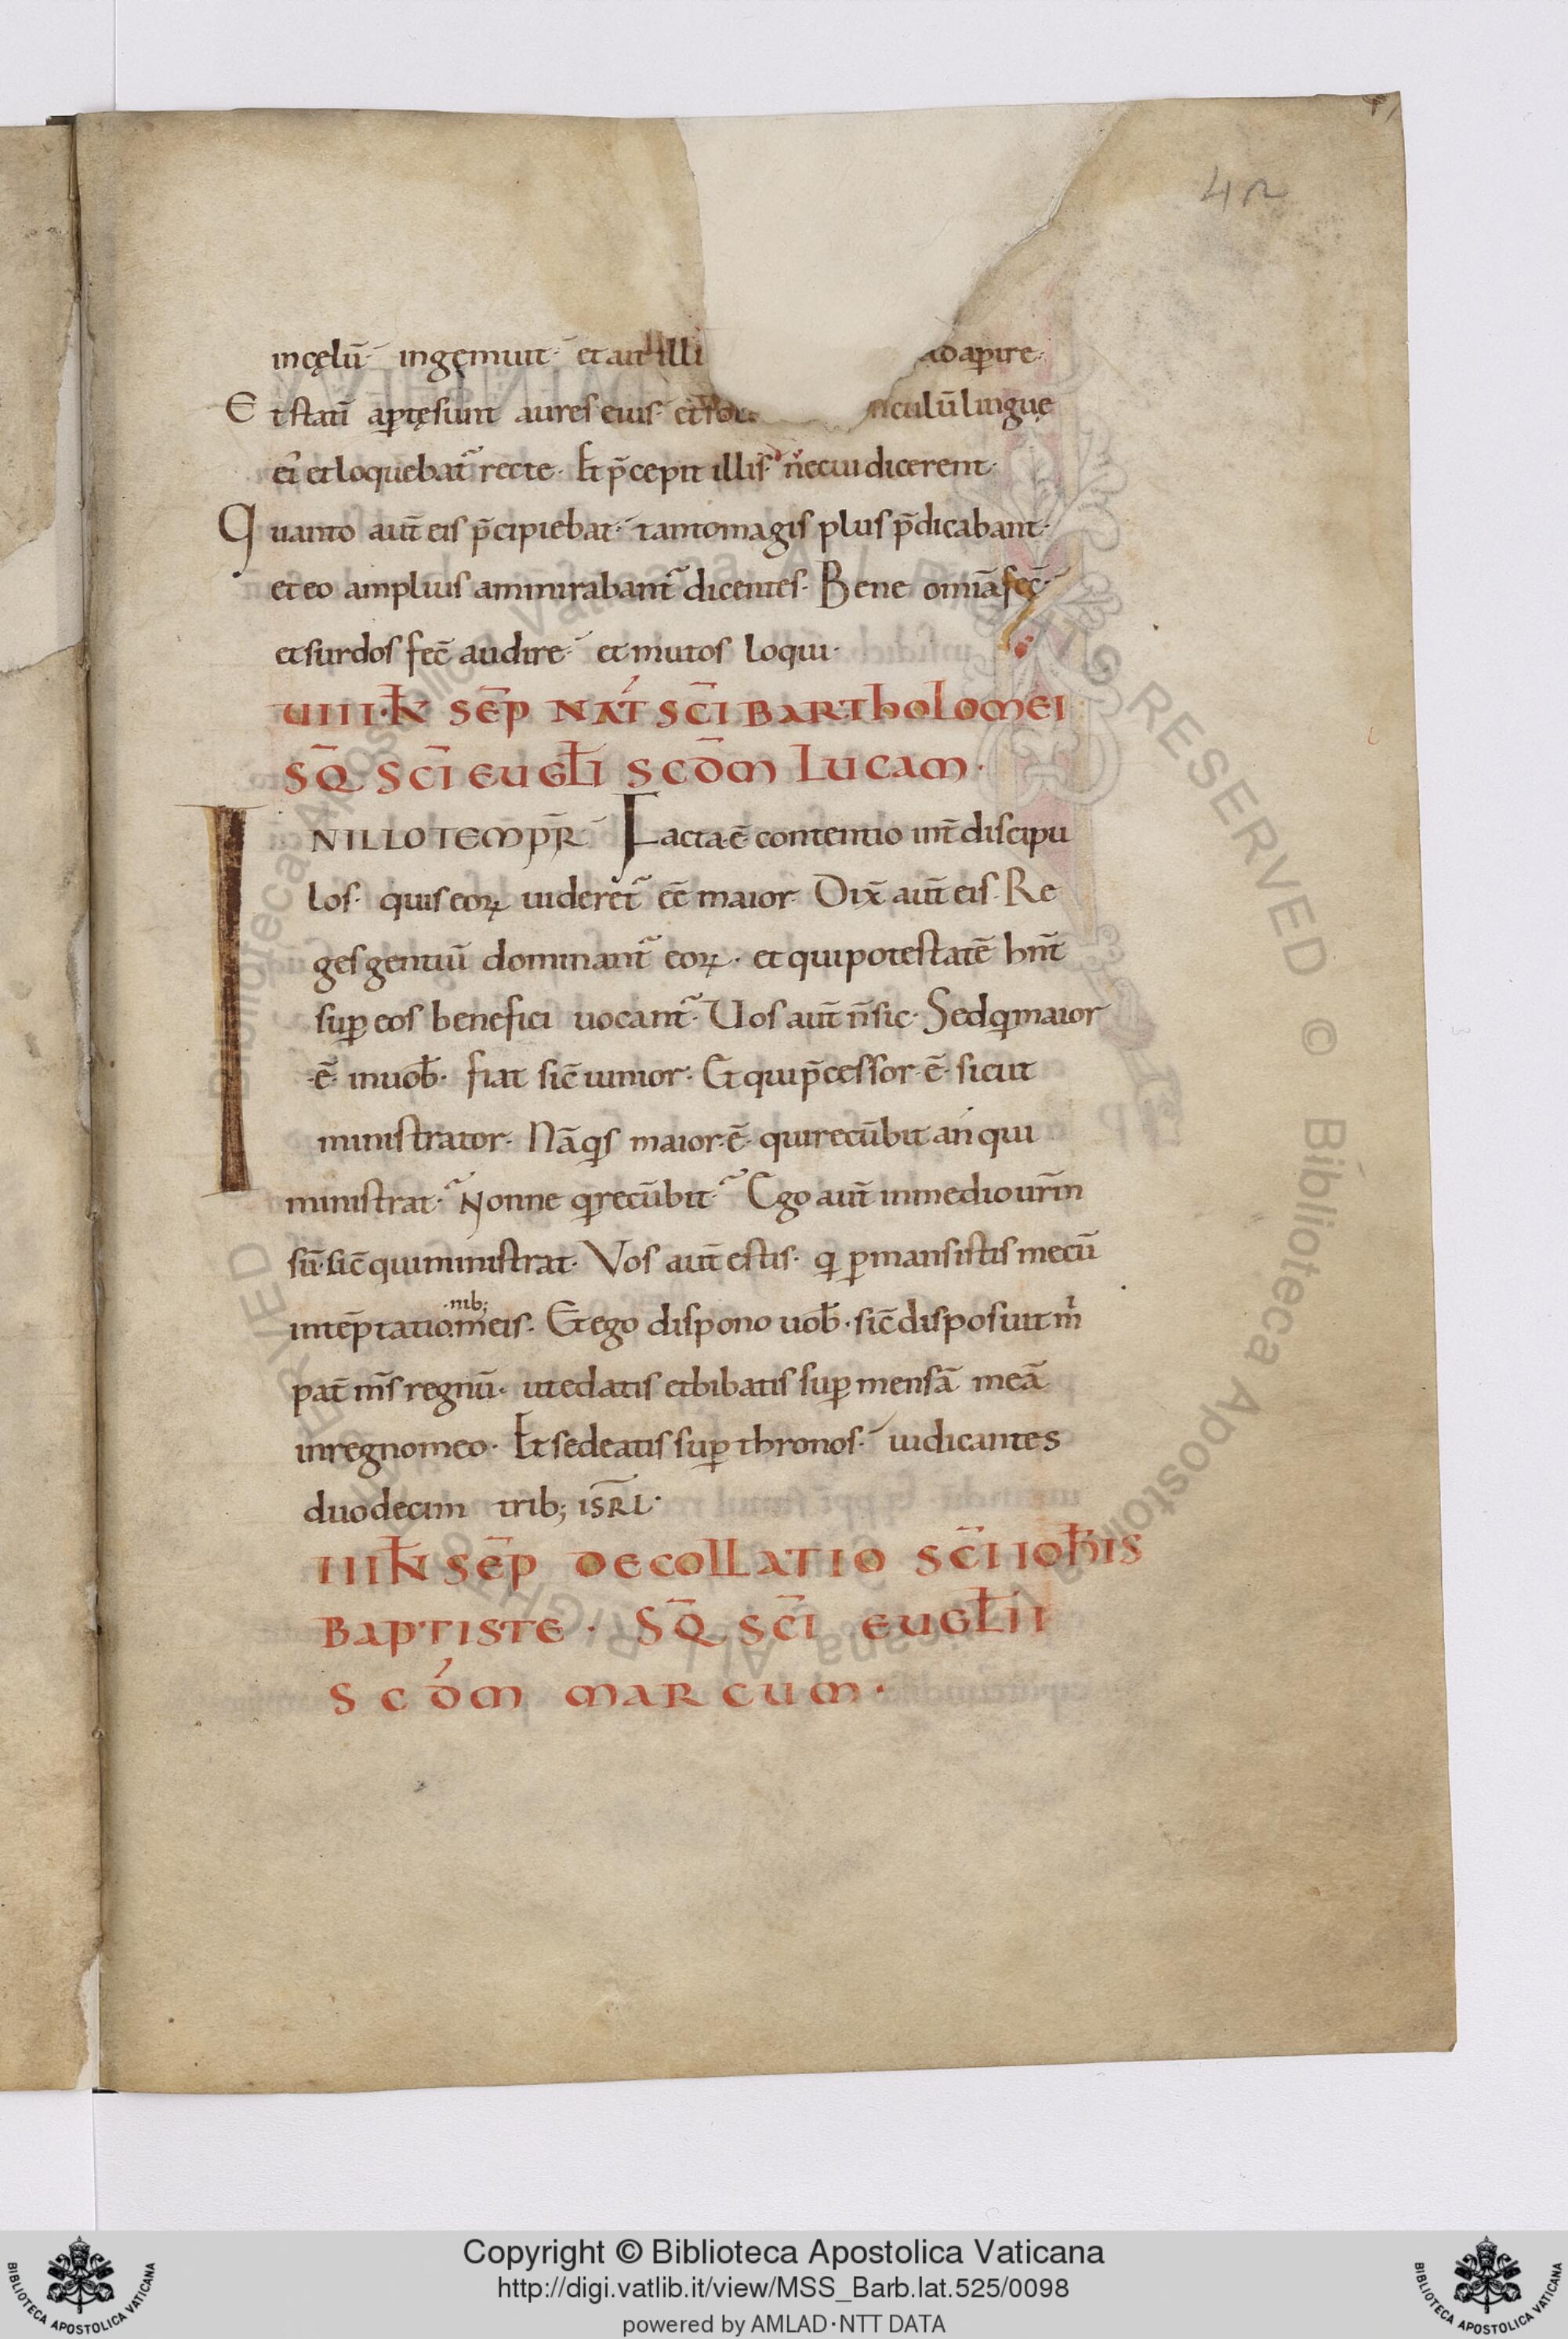 42
incęlū ingęmuit et ait illi adaꝑire.
Et statī aꝑtęsunt aures eius et culū lingue
ei' et loquebat̃ recte. Et p̄cepit illis n̄ecui dicerent.
Quanto aut̄ eis p̄cipiebat. tantomagis plus p̄dicabant.
et eo amplius ammirabant̃ dicentes. Bene omīa fec̄
et surdos fec̄ audire et mutos loqui.
UIIII.K̄ SEP̄ NAT́ SC̄I BARTHOLOMEI
SQ̄ SC̄I EUGŁI SCDM̄ LUCAM.
INILLOTEMPR̄ Facta ē contentio int̄ discipu
los. quis eoꝝ uideret̃ eē maior. Dix̄ aut̄ eis. Re
ges gentiū dominant̃ eoꝝ. et qui potestatē hn̄t
suꝑ eos benefici uocant̃. Uos aut̄ n̄ sic. Sed q maior
.ē. inuob̄. fiat sic̄ iunior. Et qui p̄cessor .ē. sicut
ministrator. Nā qs maior.ē. qui recūbit an qui
ministrat. Nonne q recūbit. Ego aut̄ inmedio ur̄m
sū. sic̄ qui ministrat. Vos aut̄ estis. q ꝑmansistis mecū
intēptatio.nib;meis. Et ego dispono uob̄. sic̄ disposuit m
pat̄ m̄s regnū. ut edatis et bibatis suꝑ mensā meā
inregnomeo. Et sedeatis suꝑ thronos. iudicantes
duodecim trib; ISR̄L.
IIIIKŁ SEP̄ DECOLLATIO SC̄I IOH̄IS
BAPTISTE. SQ̄ SC̄I EUGŁII
SCD́M MARCUM.
Copyright © Biblioteca Apostolica Vaticana
http://digi.vatlib.it/view/MSS_Barb.lat.525/0098
powered by AMLAD·NTT DATA